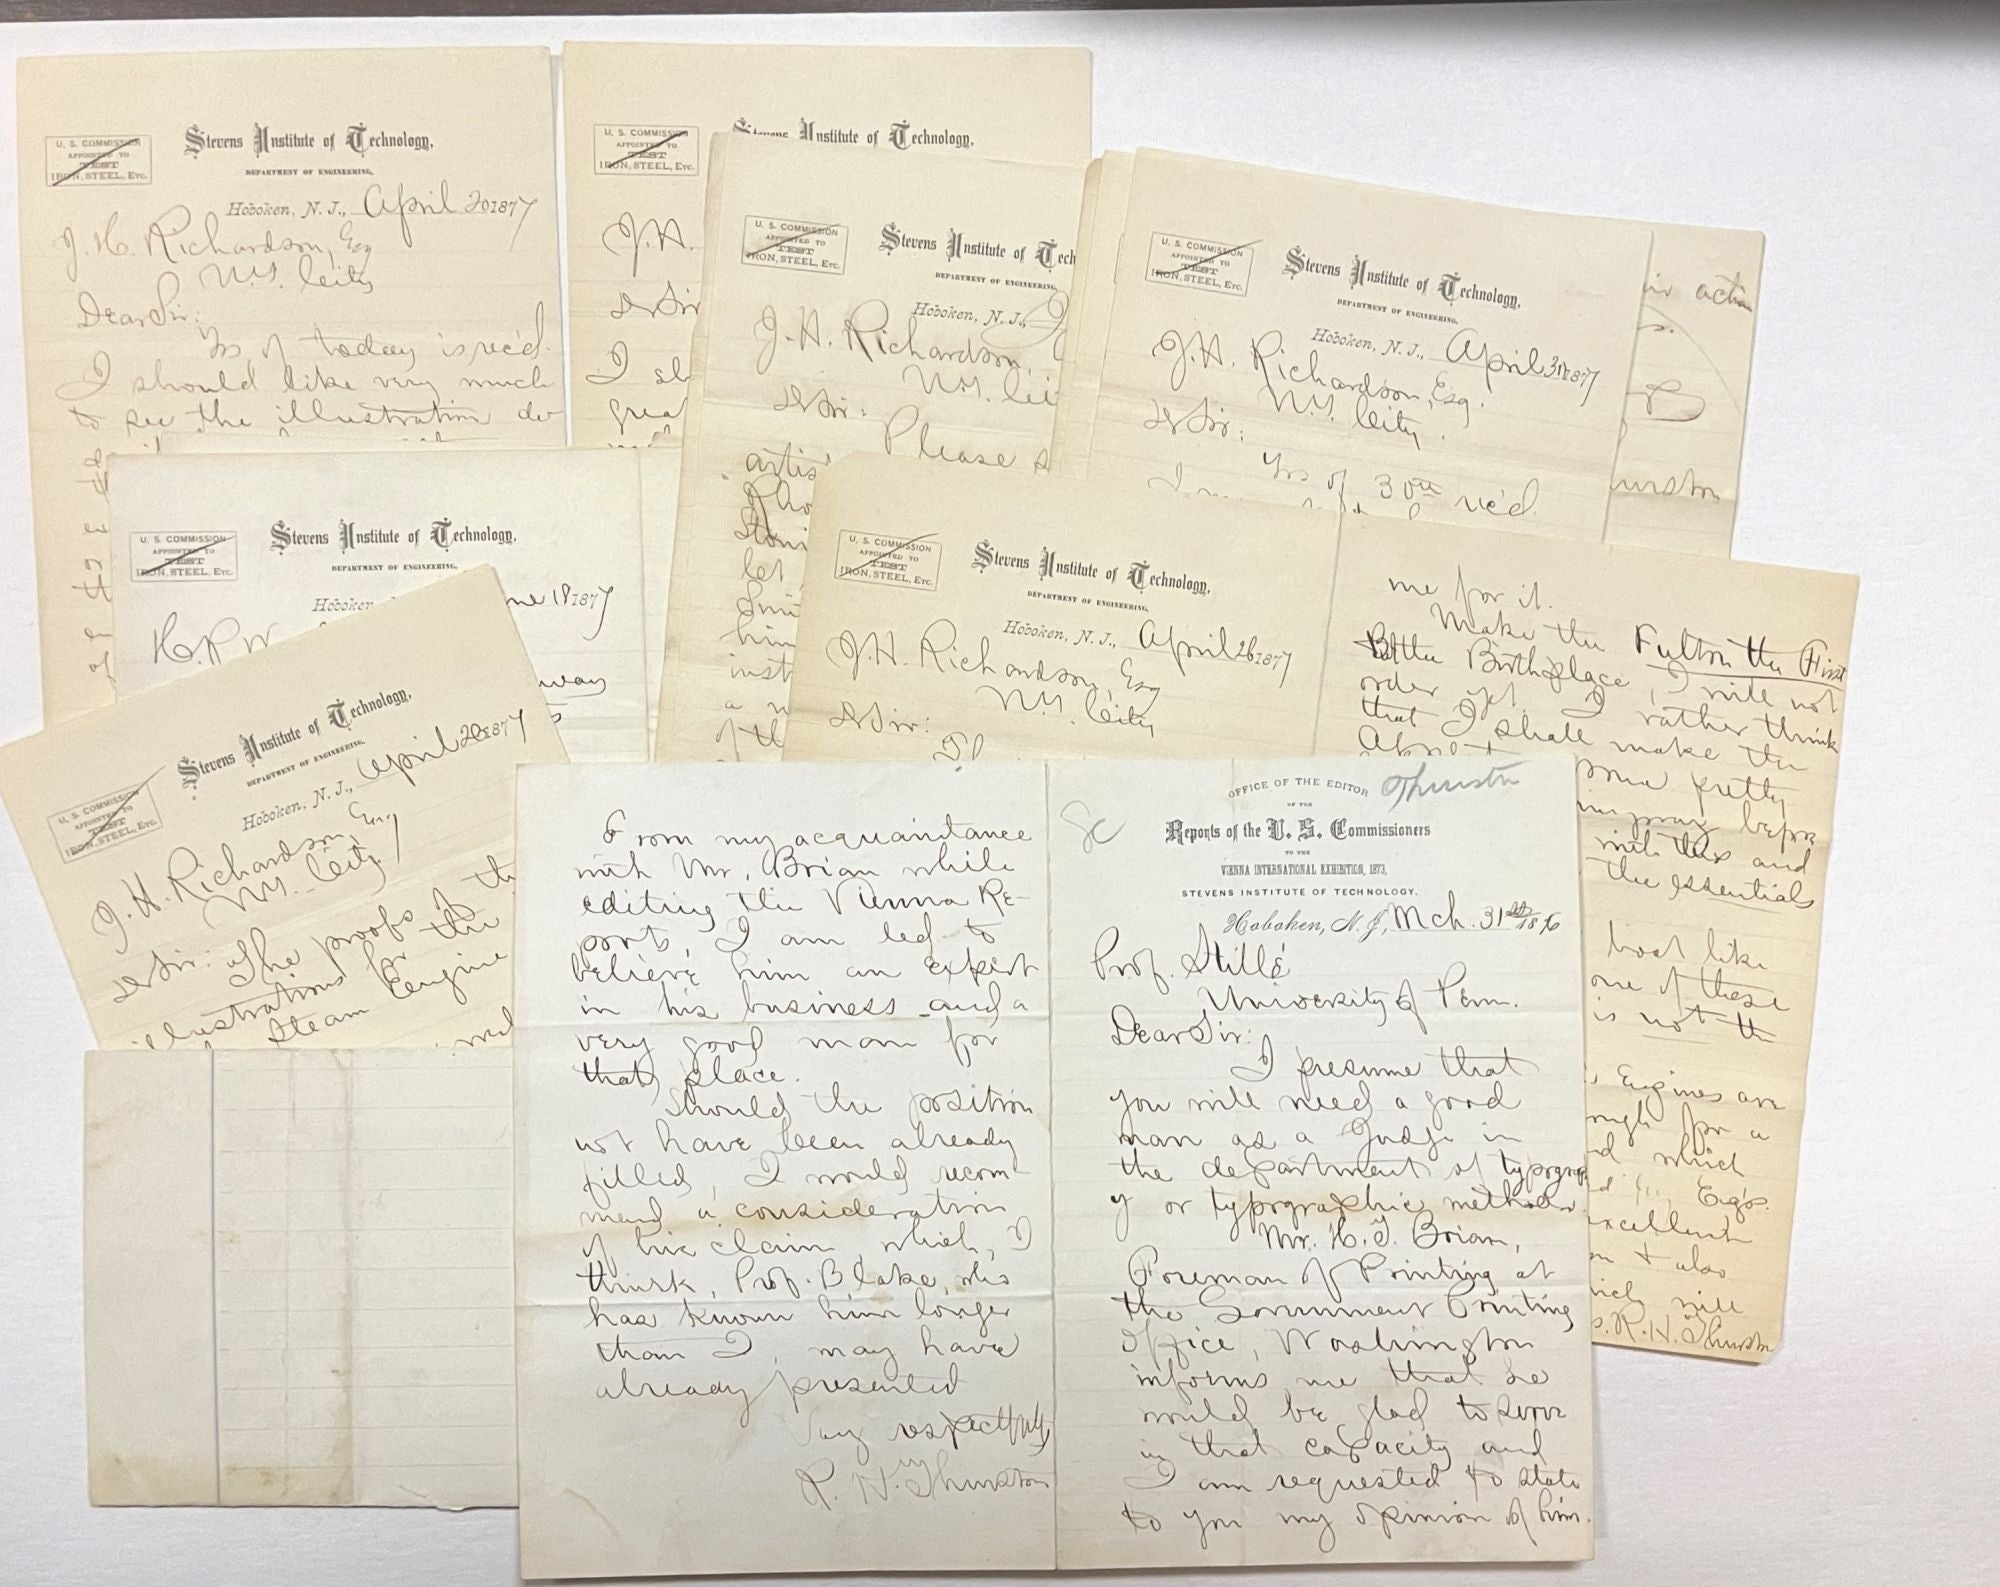 U. S. COMMISSION
APPOINTED TO
TEST
IRON, STEEL, Etc.
Stevens Institute of Technology,
DEPARTMENT OF ENGINEERING,
Hoboken, N. J., April 20 1877
J. H. Richardson, Esq
N.Y. City
Dear Sir:
Yrs of today is rec'd.
I should like very much
to see the illustration
U. S. COMMISSION
APPOINTED TO
TEST
IRON, STEEL, Etc.
Stevens Institute of Technology,
J. H.
D Sir
I sh
great
U. S. COMMISSION
APPOINTED TO
TEST
IRON, STEEL, Etc.
Stevens Institute of Tech
DEPARTMENT OF ENGINEERING,
Hoboken, N. J.,
J. H. Richardson,
N.Y. Ci
D Sir:
Please
artis
let
him
inst
a
of th
U. S. COMMISSION
APPOINTED TO
TEST
IRON, STEEL, Etc.
Stevens Institute of Technology,
DEPARTMENT OF ENGINEERING,
Hoboken, N. J., April 31 1877
J. H. Richardson, Esq.
N.Y. City.
D Sir:
Yrs of 30th rec'd.
action
urston
U. S. COMMISSION
APPOINTED TO
TEST
IRON, STEEL, Etc.
Stevens Institute of Technology,
DEPARTMENT OF ENGINEERING,
Hoboken ne 18 1877
H. P. W
way
U. S. COMMISSION
APPOINTED TO
TEST
IRON, STEEL, Etc.
Stevens Institute of Technology,
DEPARTMENT OF ENGINEERING,
Hoboken, N. J., April 26 1877
J. H. Richardson, Esq
N.Y. City
D Sir:
me for it.
Make the Fulton the First
the Birthplace, I will not
order yet. I rather think
that I shall make the
pretty
before
with this and
the essentials
boat like
one of these
is not th
Engines are
ough for a
d which
Eng's.
excellent
+ also
will
R. H. Thurston
U. S. COMMISSION
APPOINTED TO
TEST
IRON, STEEL, Etc.
Stevens Institute of Technology,
DEPARTMENT OF ENGINEERING,
Hoboken, N. J., April 1877
J. H. Richardson, Esq
N.Y. City
D Sir: The proofs of th
illustrations for the
Steam Engine
From my acquaintance
with Mr. Brian while
editing the Vienna Re-
ports, I am led to
believe him an expert
in his business and a
very good man for
that place.
Should the position
not have been already
filled, I would recom-
mend a consideration
of his claim, which, I
think, Prof. Blake, who
has known him longer
than I, may have
already presented
Very respectfully
R. H. Thurston
OFFICE OF THE EDITOR Thurston
OF THE
Reports of the U. S. Commissioners
TO THE
VIENNA INTERNATIONAL EXHIBITION, 1873,
STEVENS INSTITUTE OF TECHNOLOGY.
Hoboken, N. J., Mch. 31st 1876
Prof. Stillé
University of Penn.
Dear Sir:
I presume that
you will need a good
man as a Judge in
the department of typograph
y or typographic methods.
Mr. H. T. Brian,
Foreman of Printing at
the Government Printing
Office, Washington
informs me that he
would be glad to serve
in that capacity and
I am requested to state
to you my opinion of him.